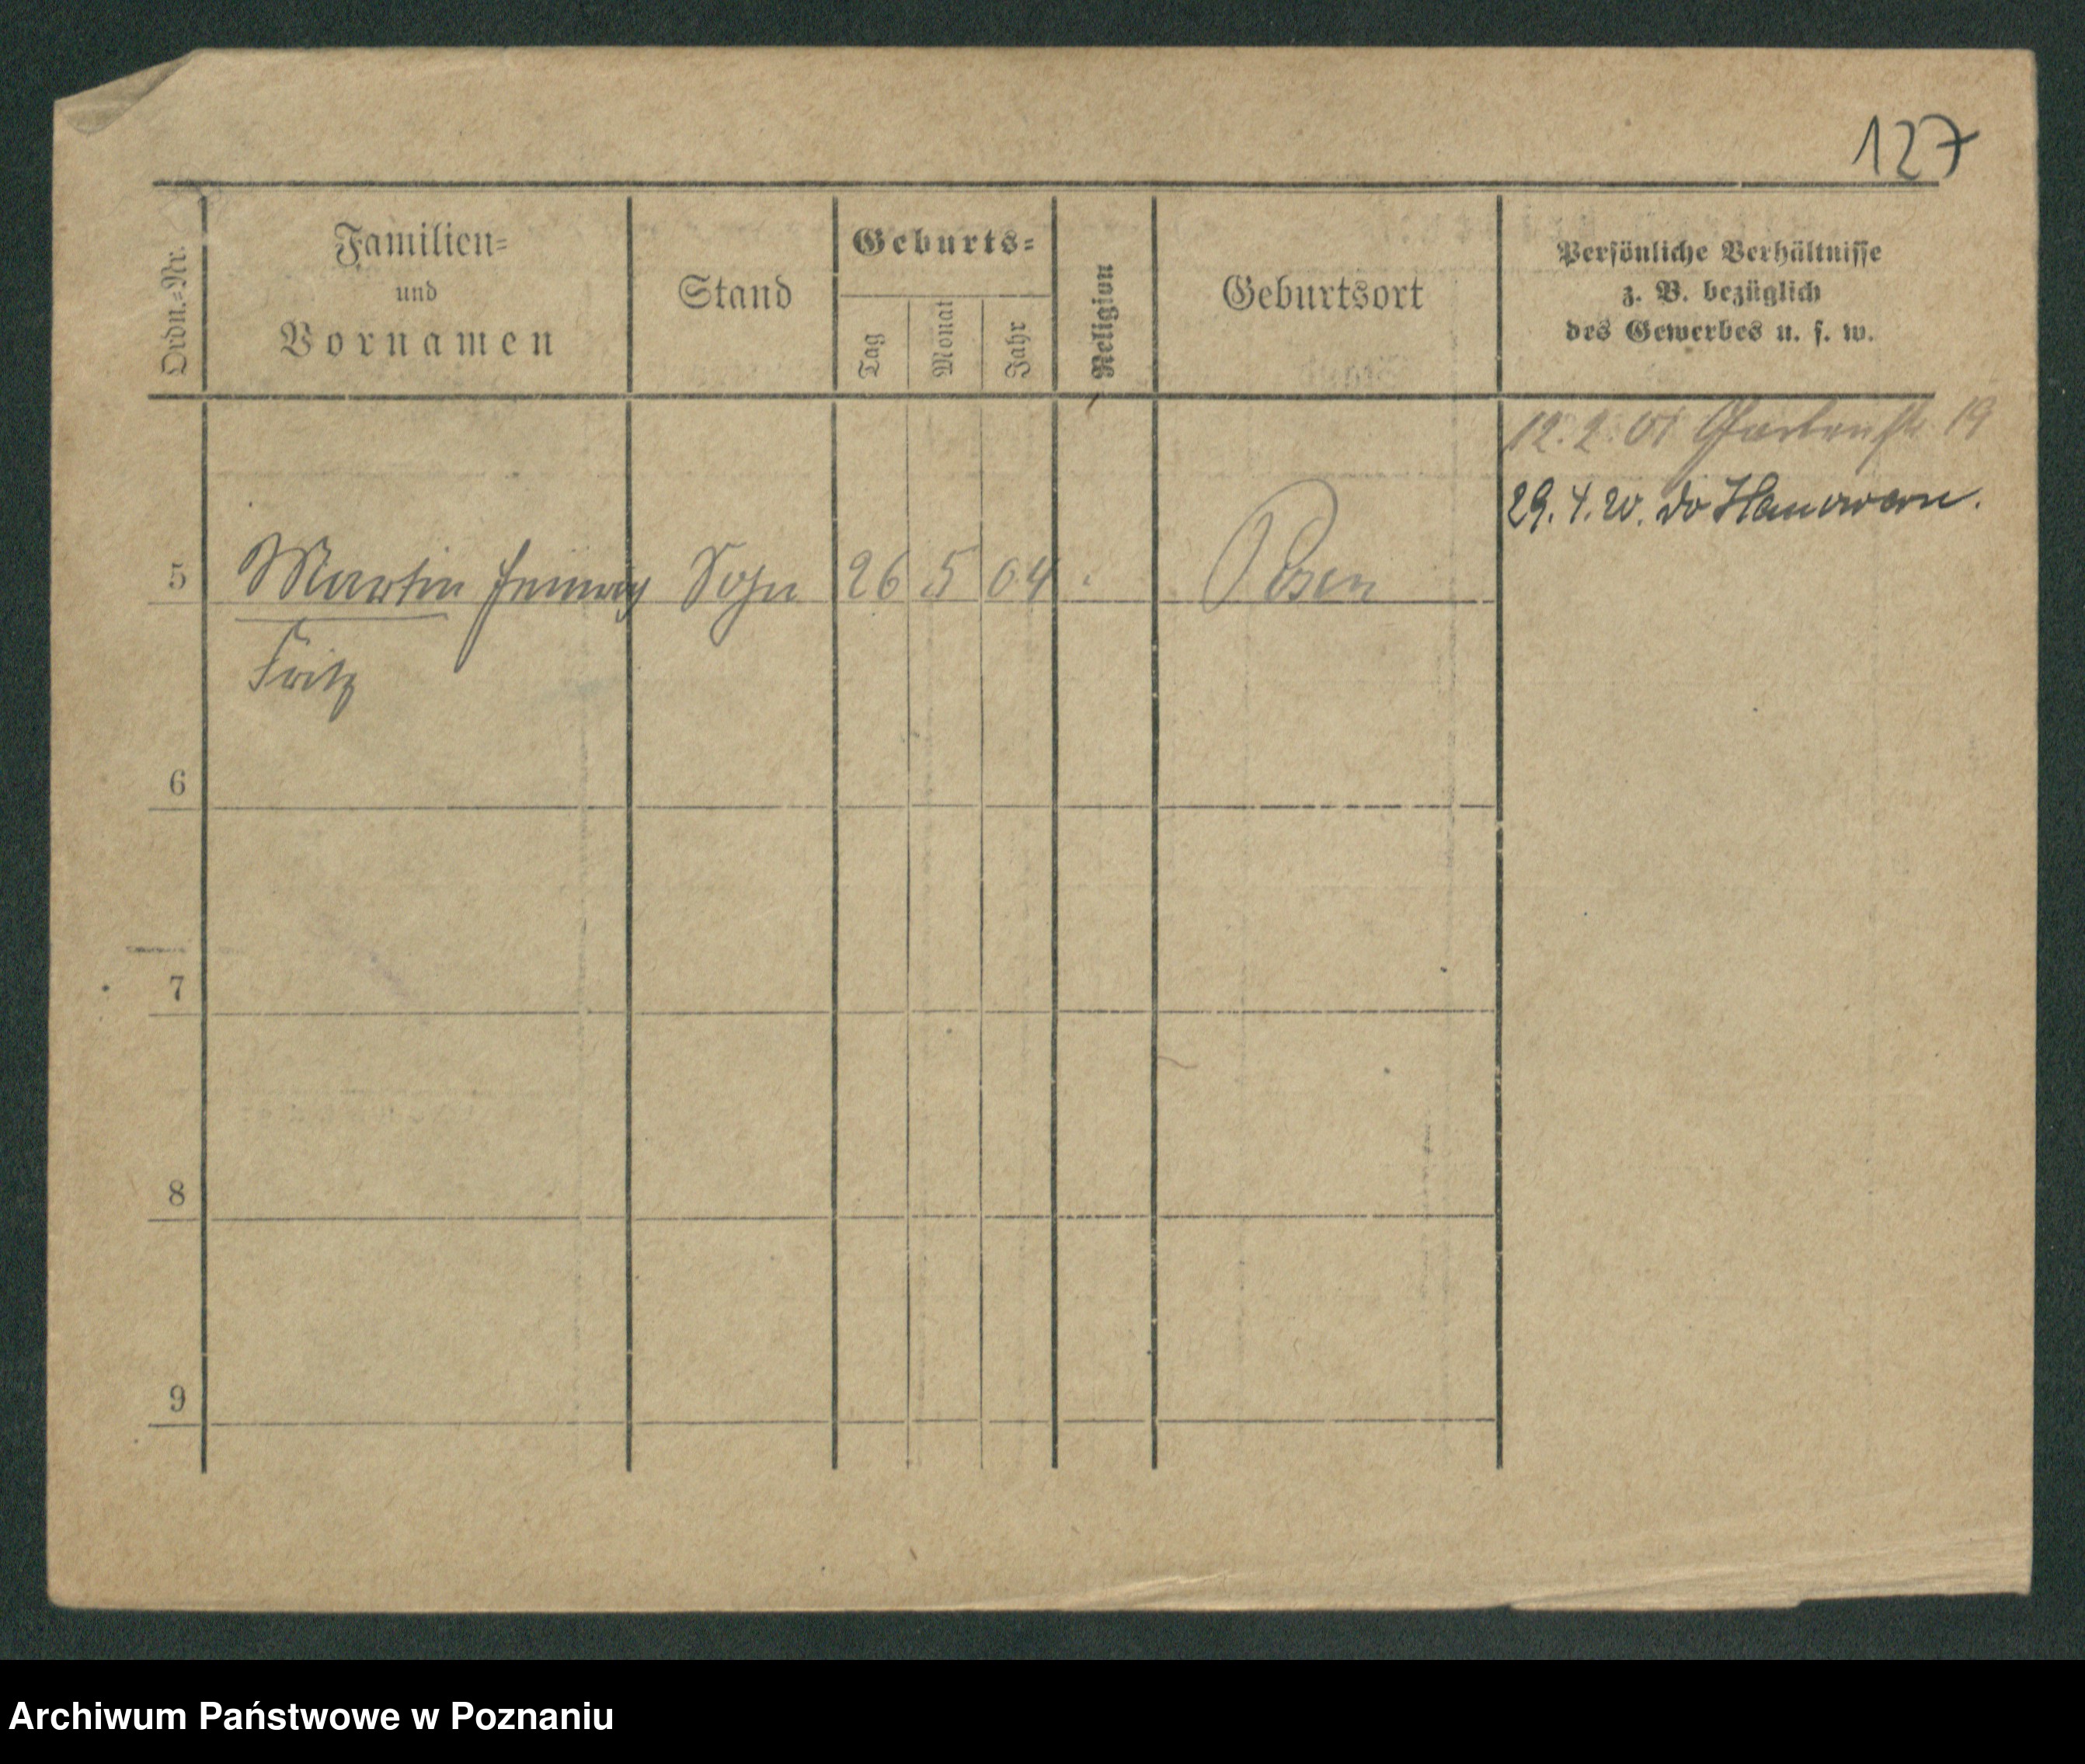 127
Ordn.=Nr.
Familien=
und
Vornamen
Stand
Geburts=
Tag
Monat
Jahr
Religion
Geburtsort
Persönliche Verhältnisse
z. B. bezüglich
des Gewerbes u. s. w.
12. 2. 01 Gartenstr 19
29. 4. 20. do Hanoweru.
5 Martin Heinrich Sohn 26 5 04 Posen
Fritz
6
7
8
9
Archiwum Państwowe w Poznaniu